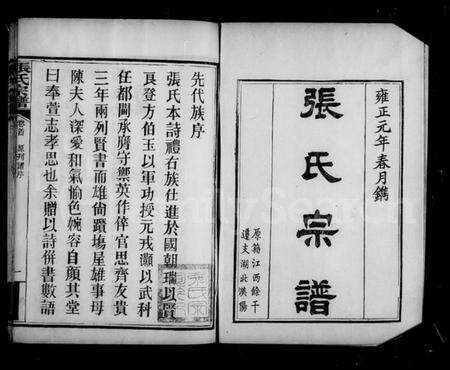 雍正元年春月鐫
張氏宗譜
原籍江西餘干
遷支湖北漢陽
先代族序
張氏本詩禮右族仕進於國朝瑞以賢
良登方伯玉以軍功授元戎灝以武科
任都閫承廕守禦英作倅官思齊友貴
三年兩列賢書而雄尙躓塲屋雄事母
陳夫人深愛和氣愉色婉容自顏其堂
曰奉萱志孝思也余贈以詩併書數語
張氏宗譜
卷首
原列譜序
一
FamilySearch